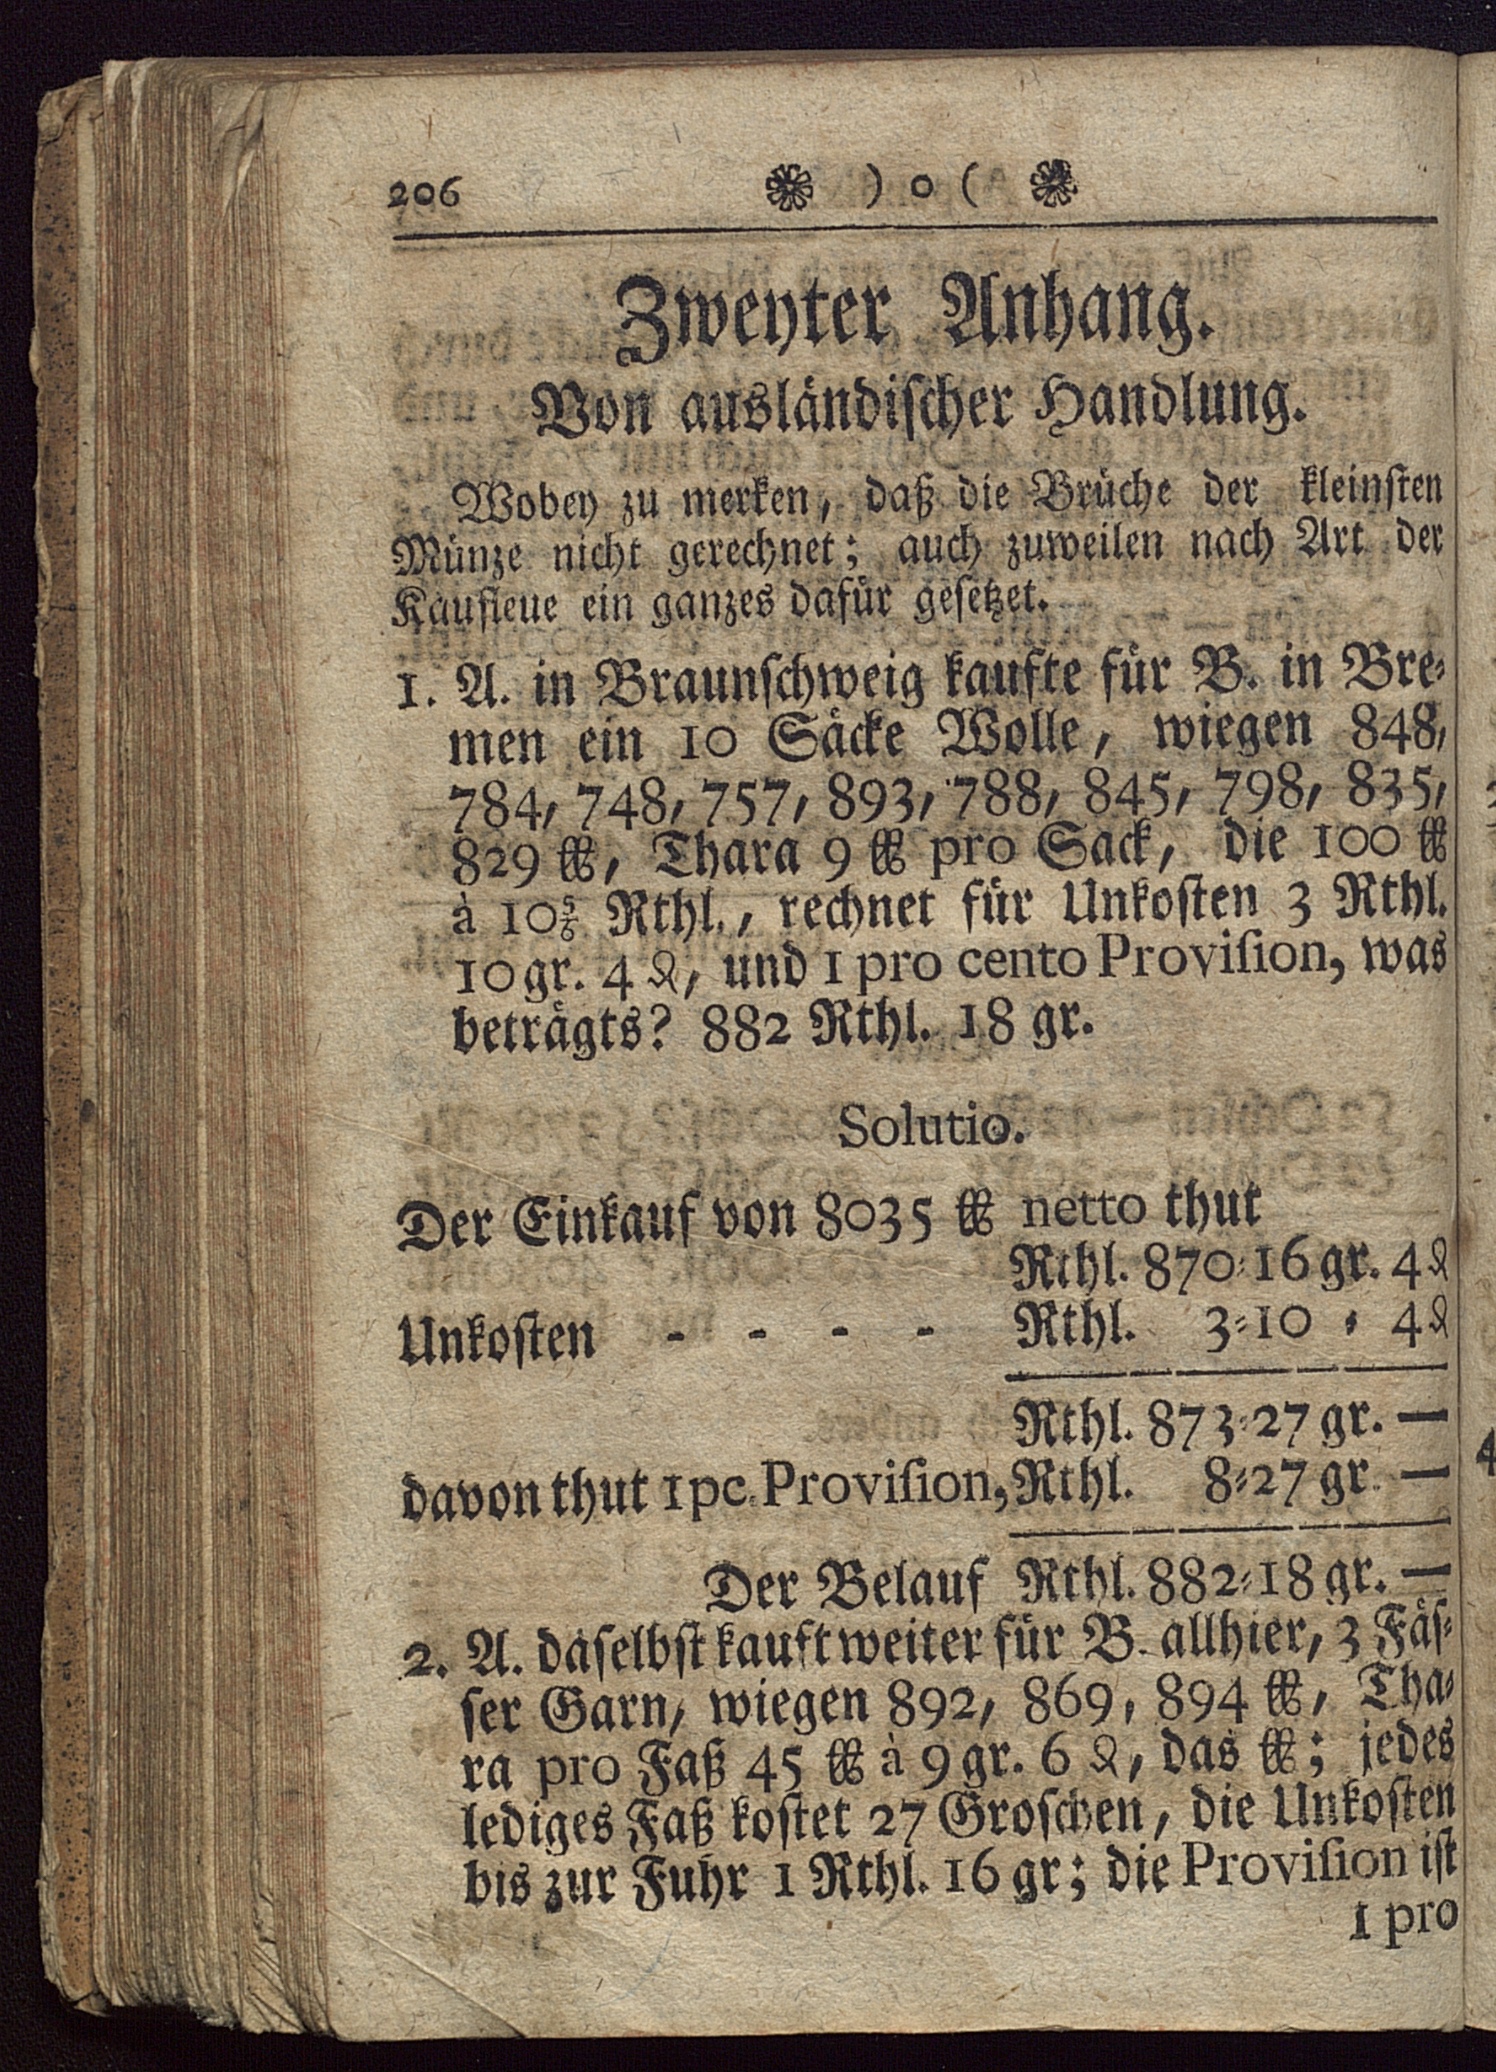 206 ) o (
Zweyter Anhang.
Von ausländischer Handlung.
Wobey zu merken, daß die Brüche der kleinsten
Münze nicht gerechnet; auch zuweilen nach Art der
Kaufleue ein ganzes dafür gesetzet.
1. A. in Braunschweig kaufte für B. in Bre⸗
men ein 10 Säcke Wolle, wiegen 848,
784, 748, 757, 893, 788, 845, 798, 835,
829 ℔, Thara 9 ℔ pro Sack, die 100 ℔
à 10⅚ Rthl., rechnet für Unkosten 3 Rthl.
10 gr. 4 ₰, und 1 pro cento Provision, was
beträgts? 882 Rthl. 18 gr.
Solutio.
Der Einkauf von 8035 ℔ netto thut
Rthl. 870⸗16 gr. 4 ₰
Unkosten - - - - Rthl. 3⸗10 ⸗ 4 ₰
Rthl. 873⸗27 gr. —
davon thut 1 pc. Provision, Rthl. 8⸗27 gr. —
Der Belauf Rthl. 882⸗18 gr. —
2. A. daselbst kauft weiter für B. allhier, 3 Fäs⸗
ser Garn, wiegen 892, 869, 894 ℔, Tha⸗
ra pro Faß 45 ℔ à 9 gr. 6 ₰, das ℔; jedes
lediges Faß kostet 27 Groschen, die Unkosten
bis zur Fuhr 1 Rthl. 16 gr; die Provision ist
1 pro